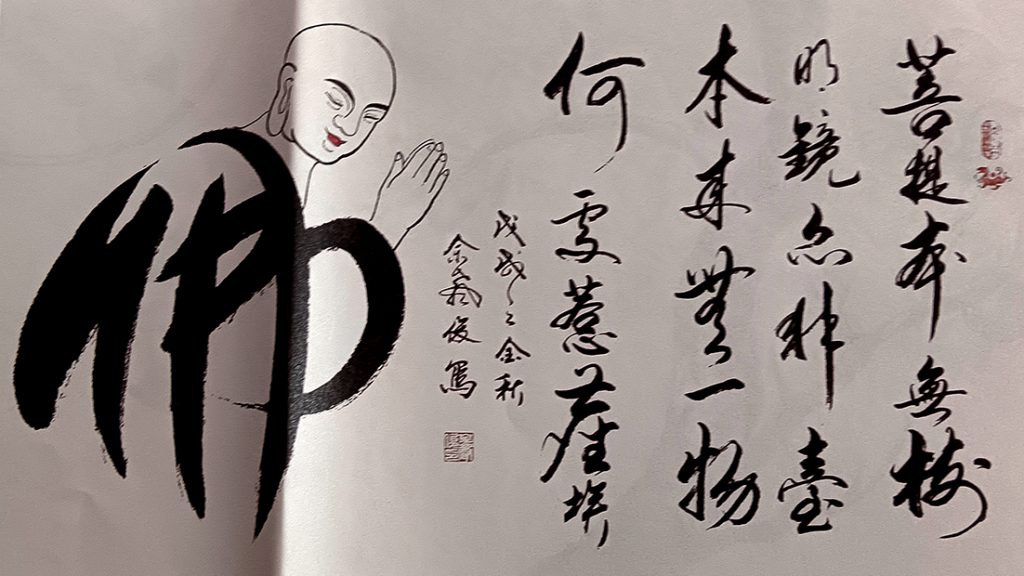 菩提本無樹
明鏡亦非臺
本來無一物
何處惹塵埃
戊戌之金秋
余俊寫
佛